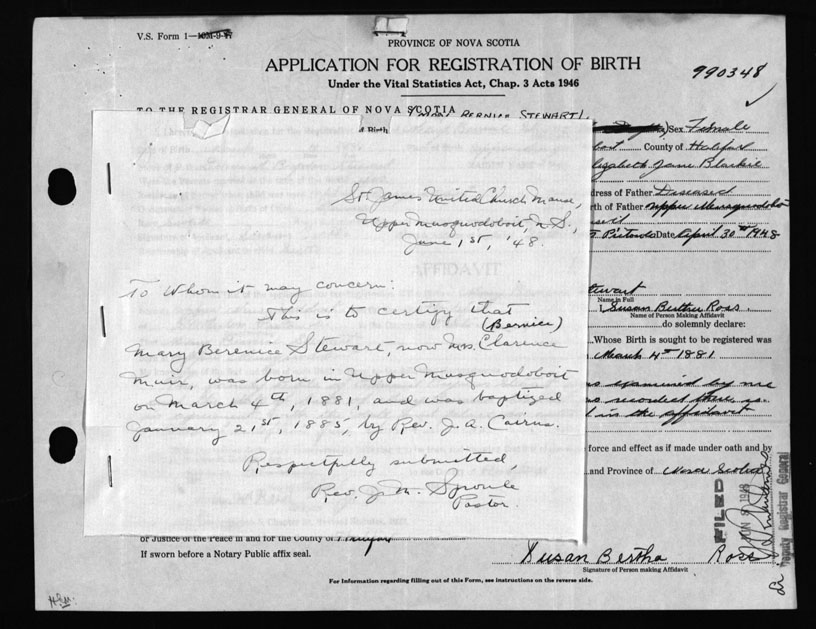 V.S. Form 1—
PROVINCE OF NOVA SCOTIA
APPLICATION FOR REGISTRATION OF BIRTH
Under the Vital Statistics Act, Chap. 3 Acts 1946
990348
TO THE REGISTRAR GENERAL OF NOVA SCOTIA
BERNICE STEWART)
Sex Female
County of Halifax
Elizabeth Jane Blackie
dress of Father Diseased
rth of Father Upper Musquodoboit
Date April 30th 1948
St. James United Church Manse,
Upper Musquodoboit, N.S.,
June 1st, '48.
To Whom it may concern:
This is to certify that
(Bernice)
Mary Berenice Stewart, now Mrs. Clarence
Muir, was born in Upper Musquodoboit
on March 4th, 1881, and was baptized
January 21st, 1885, by Rev. J. A. Cairns.
Respectfully submitted,
Rev. J. M. Sproule
Pastor.
AFFIDAVIT
Stewart
Name in Full
I, Susan Bertha Ross
Name of Person Making Affidavit
do solemnly declare:
Whose Birth is sought to be registered was
March 4th 1881
examined by me
recorded there is
the affidavit
force and effect as if made under oath and by
and Province of Nova Scotia
FILED
JUN 5 1948
Deputy Registrar General
or Justice of the Peace in and for the County of Halifax
If sworn before a Notary Public affix seal.
Susan Bertha Ross
Signature of Person making Affidavit
For Information regarding filling out of this Form, see instructions on the reverse side.